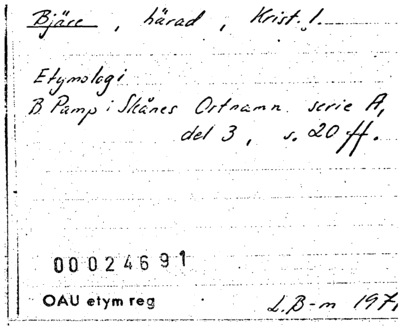 Bjäre, härad, Krist. l.
Etymologi
B. Pamp i Skånes Ortnamn serie A,
del 3, s. 20 ff.
00024691
OAU etym reg
L.B-m 1971